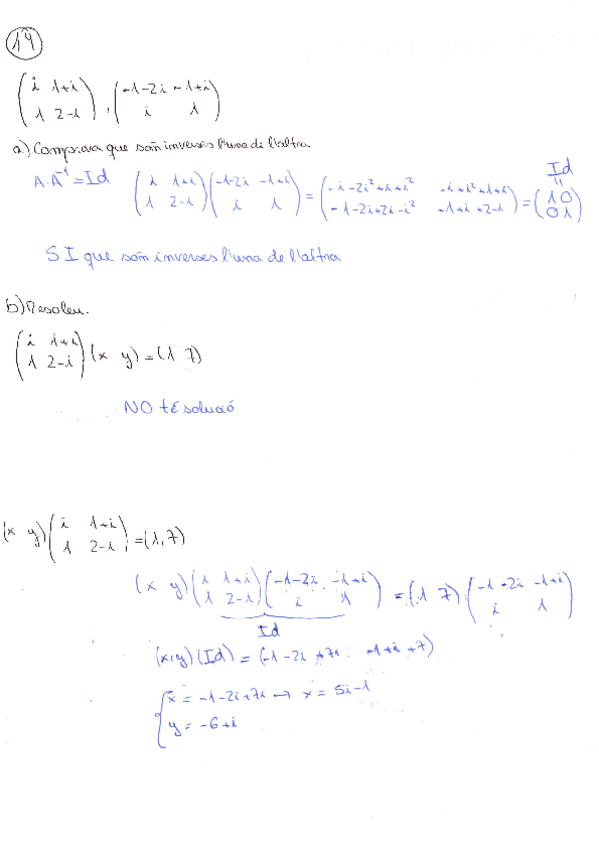 14
( i 1+i ; 1 2-i ) , ( -1-2i -1+i ; i 1 )
a) Comprova que són inverses l'una de l'altra.
A·A⁻¹ = Id ( i 1+i ; 1 2-i ) ( -1-2i -1+i ; i 1 ) = ( -i-2i²+i+i² -i+i²+1+i ; -1-2i+2i-i² -1+i+2-i ) = ( 1 0 ; 0 1 ) = Id
SI que són inverses l'una de l'altra
b) Resoleu.
( i 1+i ; 1 2-i ) (x y) = (1 7)
NO té solució
(x y) ( i 1+i ; 1 2-i ) = (1, 7)
(x y) ( i 1+i ; 1 2-i ) ( -1-2i -1+i ; i 1 ) = (1 7) · ( -1-2i -1+i ; i 1 )
Id
(x, y) (Id) = (-1-2i+7i -1+i+7)
x = -1-2i+7i → x = 5i-1
y = -6+i